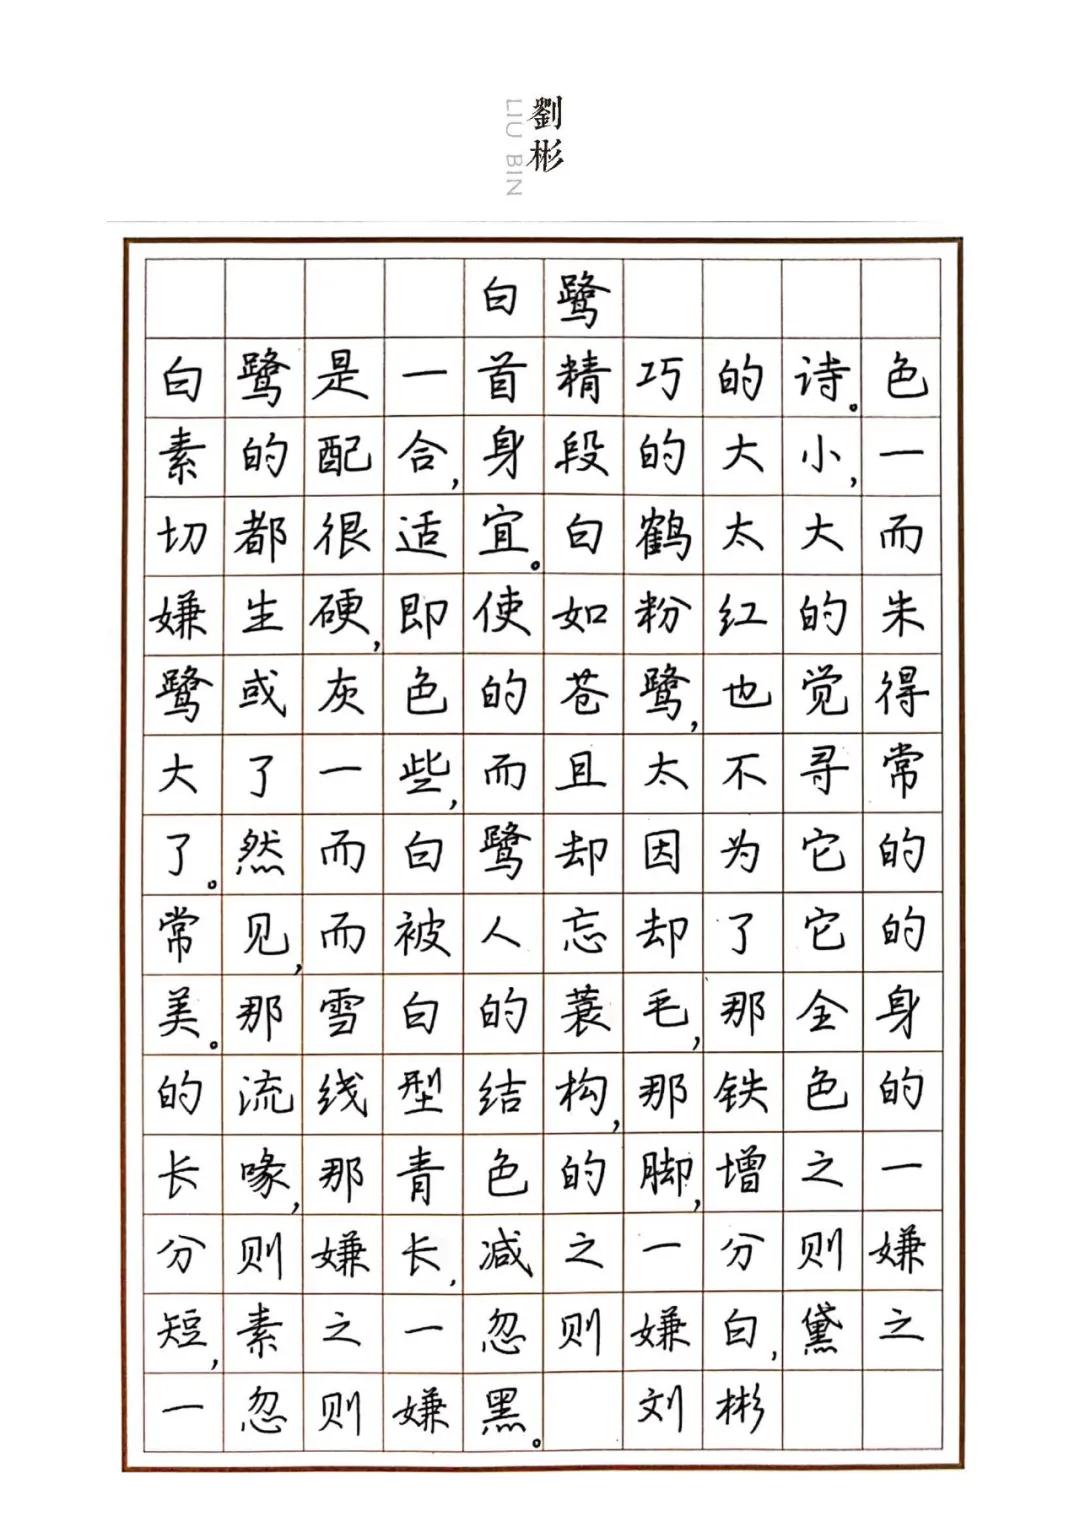 劉彬
LIU BIN
白鹭
白鹭是一首精巧的诗。色
素的配合,身段的大小,一
切都很适宜。白鹤太大而
嫌生硬,即使如粉红的朱
鹭或灰色的苍鹭,也觉得
大了一些,而且太不寻常
了。然而白鹭却因为它的
常见,而被人忘却了它的
美。那雪白的蓑毛,那全身
的流线型结构,那铁色的
长喙,那青色的脚,增之一
分则嫌长,减之一分则嫌
短,素之一忽则嫌白,黛之
一忽则嫌黑。 刘彬